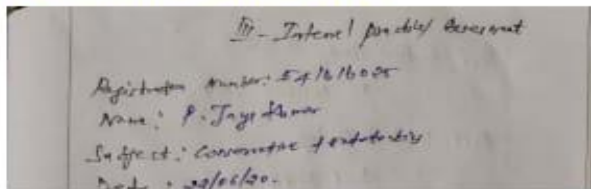 III - Internal practical Assessment
Registration Number: 54161
Name: P. Jaya Kumar
Subject: Conservative & endodontics
Date: 29/06/20.